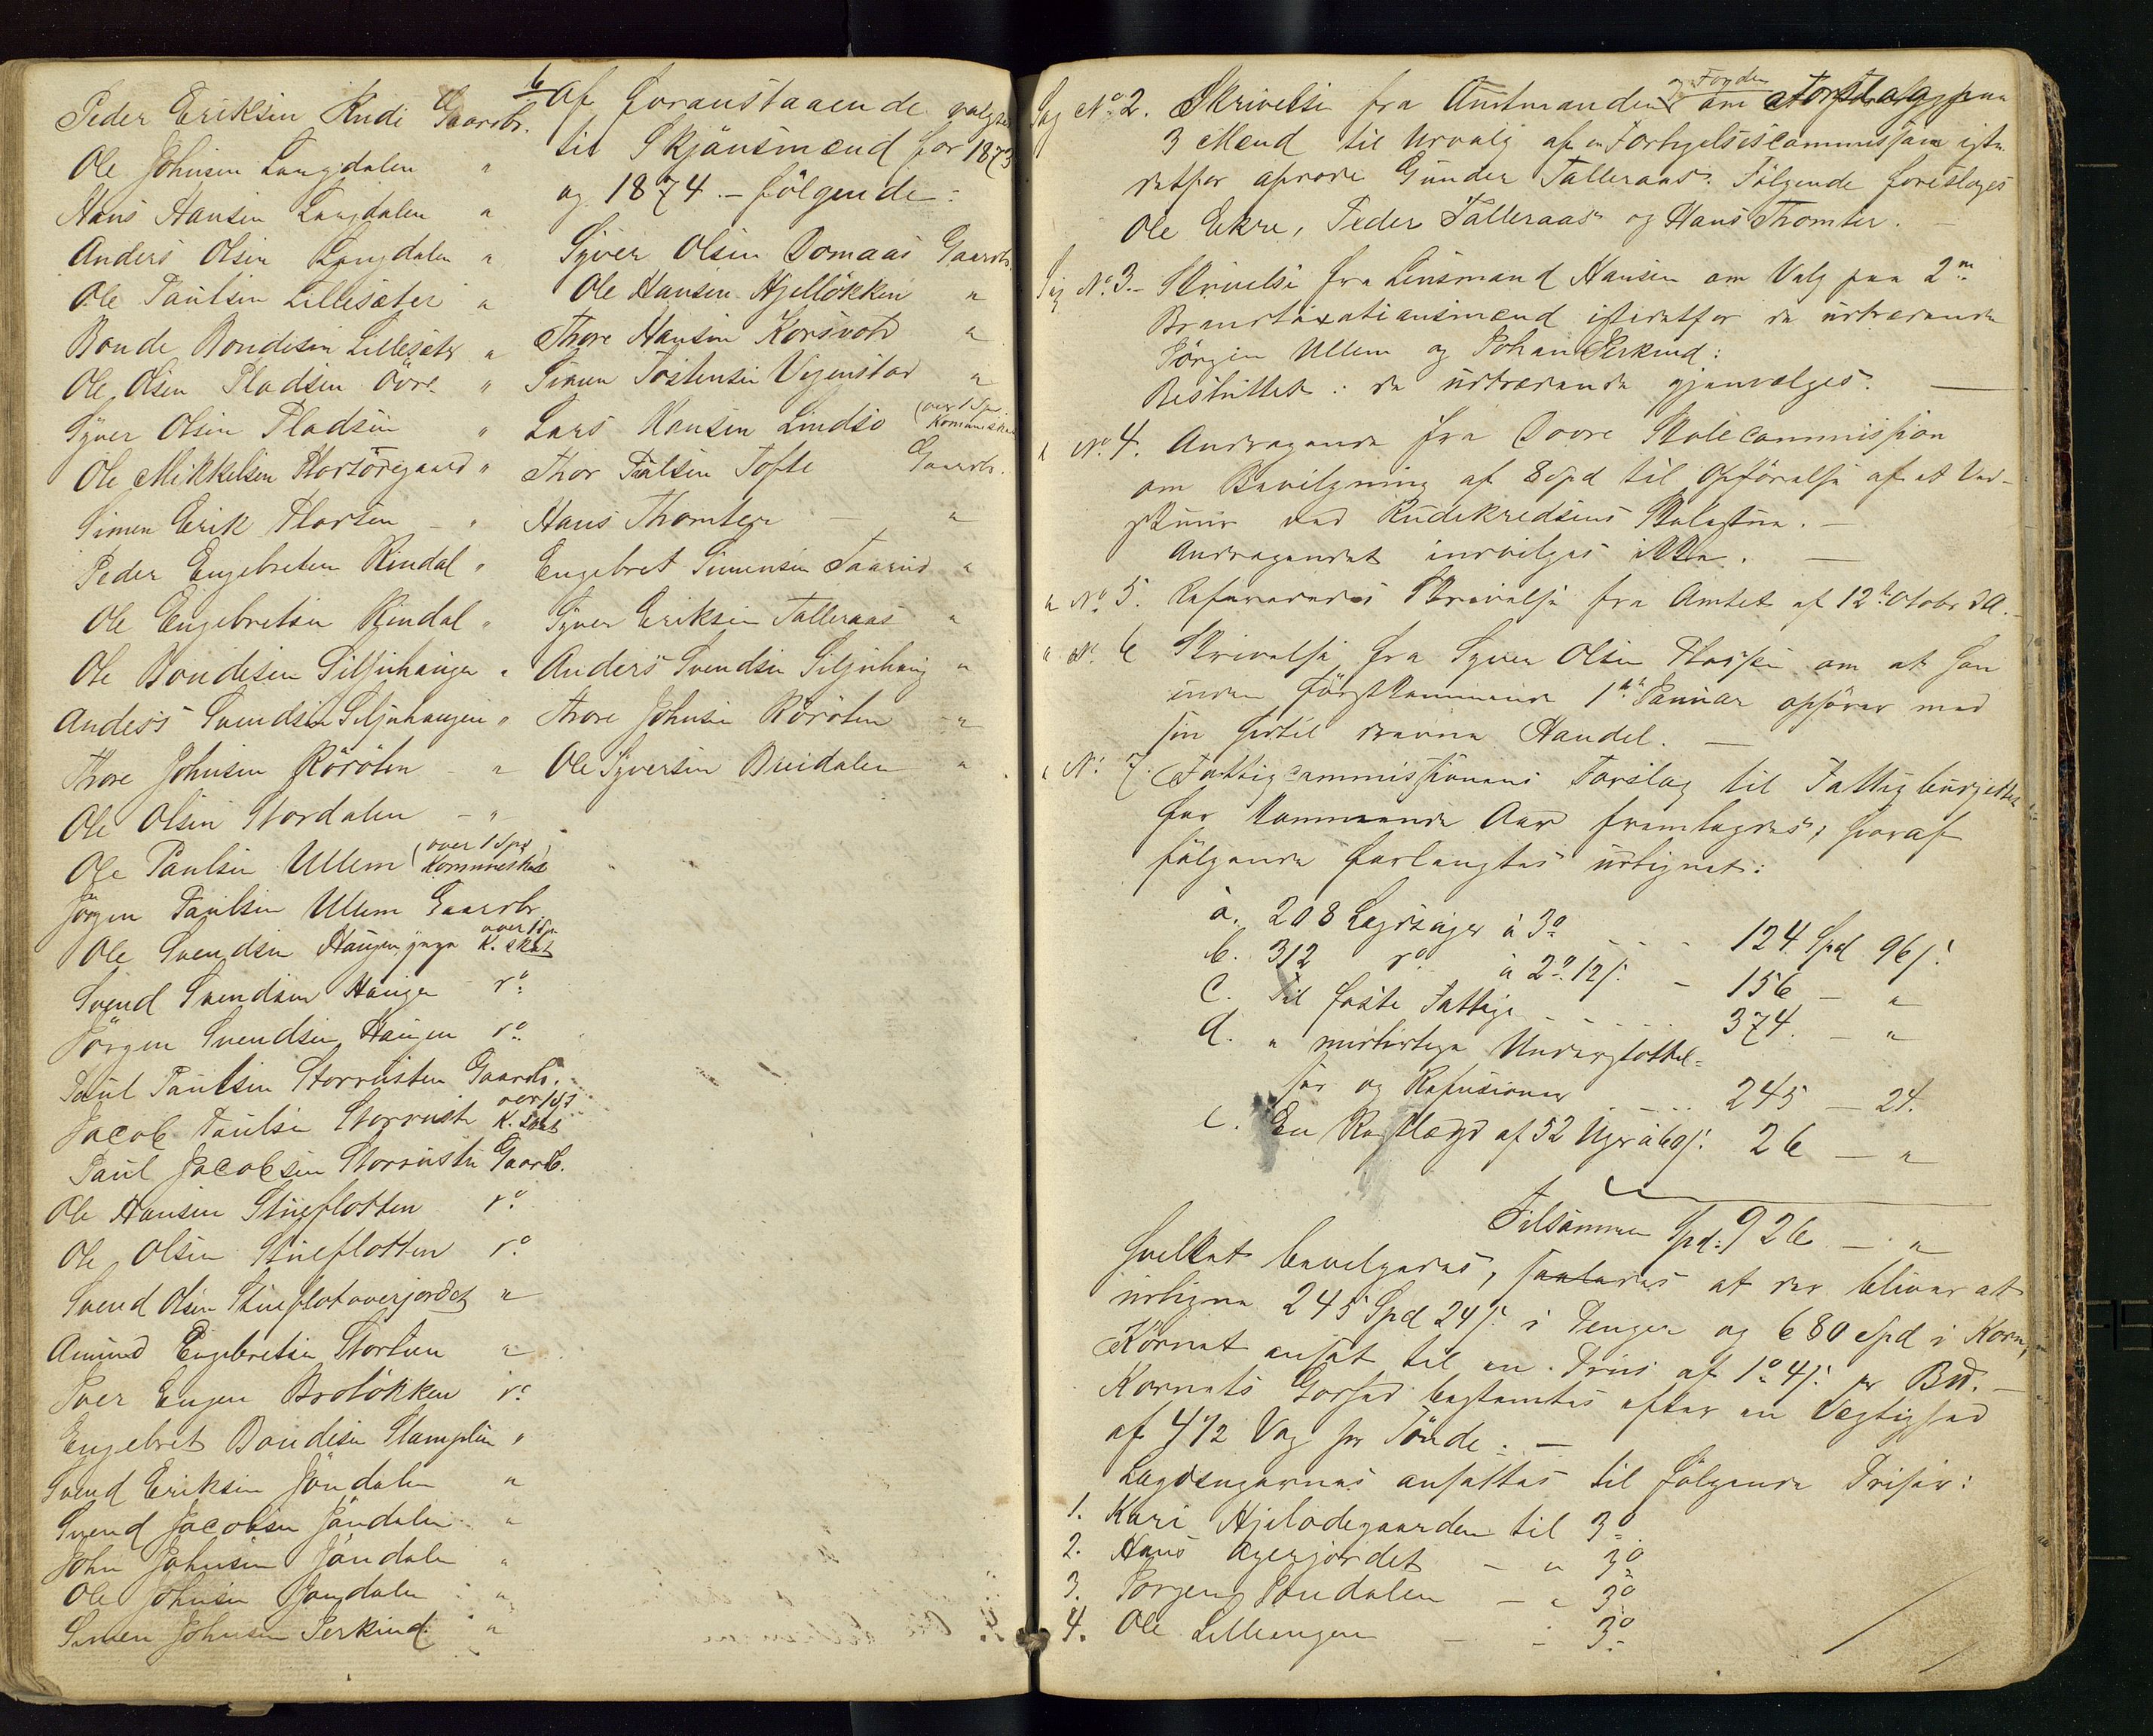 Peder Eriksen Rudi Gaardbr.
Ole Johnsen Langdalen "
Hans Hansen Langdalen "
Anders Olsen Langdalen "
Ole Paulsen Lillesæter "
Bonde Bondesen Lillesæter "
Ole Olsen Pladsen Övre "
Syver Olsen Pladsen "
Ole Mikkelsen "
Simen Erik "
Peder Engebretsen Rindal "
Ole Engebretsen Rindal "
Ole Bondesen Siljuhaugen "
Anders Svendsen Siljuhaugen "
Thore Johnsen Röröien "
Ole Olsen Stordalen - "
Ole Paulsen Ullem (over 1 Spd Kommuneskat
Jörgen Paulsen Ullem Gaardbr
Ole Svendsen Haugen, yngre over 1 Sp. K. skat
Svend Svendsen Haugen do
Jörgen Svendsen Haugen do
Paul Paulsen Storrusten Gaardb.
Jacob Paulsen Storrusten over 1 Sp K. Skat
Paul Jacobsen Storrusten Gaardb.
Ole Hansen Stueflotten do
Ole Olsen Stueflotten do
Svend Olsen Stueflotoverjordet "
Amund Engebretsen "
Iver Engen Brolökken do
Engebret Bondesen "
Svend Eriksen Jöndalen "
Svend Jacobsen Jöndalen "
John Johnsen Jöndalen "
Ole Johnsen Jöndalen "
Simen Johnsen Jerkind "
6 Af foranstaaende valgtes
til Skjönsmænd for 1873
og 1874 - fölgende:
Syver Olsen Domaas Gaardb.
Ole Hansen Hjellökken "
Thore Hansen Korsvold "
Simen Tostensen Vigenstad "
Lars Hansen Lindsö (over 1 Sp. Komuneskat
Thor Paulsen Tofte Gaardb.
Hans Thomter - "
Engebret Simensen Taarud "
Syver Eriksen Talleraas "
Anders Svendsen Siljuhaug "
Thore Johnsen Röröien - "
Ole Syversen Bredalen "
Sag No 2. Skrivelse fra Amtmanden og Fogden om Forslag paa
3 Mænd til Udvalg af en Forligelsescommissair iste-
detfor afdöde Gunder Talleraas. Fölgende foresloges
Ole Ekre, Peder Talleraas og Hans Thomter. -
Sag No 3. - Skrivelse fra Lensmand Hansen om Valg paa 2de
Brandtaxationsmænd istedetfor de udtrædende
Jörgen Ullem og Johan Jerkind:
Besluttet: de udtrædende gjenvælges. -
" No 4. Andragende fra Dovre Skolecommission
om Bevilgning af 8 Spd til Opförelse af et Ved-
skuur ved Rudikredsens Skolestue. -
Andragendet indvilges ikke. -
" No 5. Refereredes Skrivelse fra Amtet af 12te Octobr d.A. -
" No 6 Skrivelse fra Syver Olsen om at han
inden förstkommende 1ste Januar ophörer med
sin hidtil drevne Handel. -
" No 7. Fattigcommissionens Forslag til Fattigbudjettet
for kommende Aar fremlagdes, hvoraf
fölgende forlangtes udlignet:
a. 208 Lægdsuger à 3 o - - - 124 Spd 96 s.
b. 312 do à 2 o 12 s. - 156 - "
c. Til faste Fattige - - - 374. - "
d. " midlertige Understöttel-
ser og Refusioner - - - 245 - 24.
e. En af 52 Uger à 60 s. 26 - "
Tilsammen Spd: 926 - "
hvilket bevilgedes, saaledes at der bliver at
udligne 245 Spd 24 s. i Penger og 680 Spd i Korn,
Kornet ansat til en Priis af 1 o 4 s. pr Bd. -
Kornets Godhed bestemtes efter en Vægtighed
af 4 1/2 Vog pr Tönde. -
Lægdsugernes ansattes til fölgende Priser:
1. Kari Hjelodegaarden til 3 o
2. Hans Agerjordet - " 3 o
3. Jorgen Jondalen - " 3 o
4. Ole Lilleengen - - 3 o